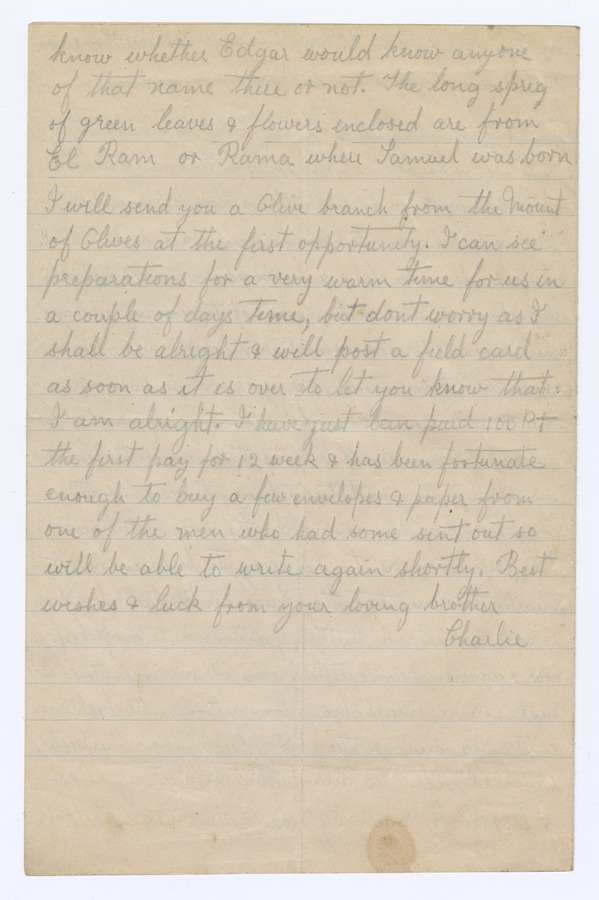 know whether Edgar would know anyone
of that name there or not. The long sprig
of green leaves & flowers enclosed are from
El Ram or Rama where Samuel was born
I will send you a Olive branch from the Mount
of Olives at the first opportunity. I can see
preparations for a very warm time for us in
a couple of days time, but dont worry as I
shall be alright & will post a field card
as soon as it is over to let you know that
I am alright. I have just been paid 100 PT
the first pay for 12 week & has been fortunate
enough to buy a few envelopes & paper from
one of the men who had some sent out so
will be able to write again shortly. Best
wishes & luck from your loving brother
Charlie